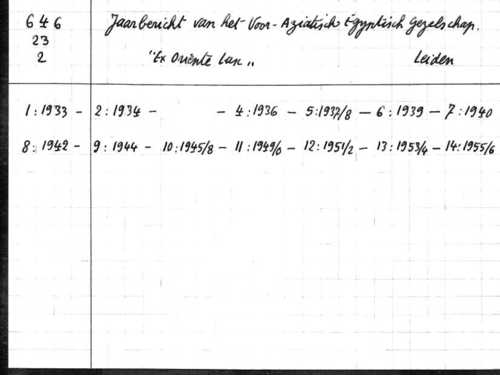 646 Jaarbericht van het Voor-Aziatisch Egyptisch Gezelschap.
23
2 "Ex Oriente Lux" Leiden
1:1933 - 2:1934 - - 4:1936 - 5:1937/8 - 6:1939 - 7:1940
8:1942 - 9:1944 - 10:1945/8 - 11:1949/0 - 12:1951/2 - 13:1953/4 - 14:1955/6